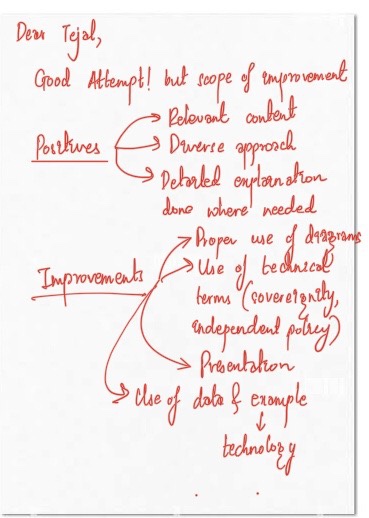 Dear Tejal,
Good Attempt! but scope of improvement
Positives
Relevant content
Diverse approach
Detailed explaination
done where needed
Improvements
Proper use of diagrams
Use of technical
terms (sovereignity,
independent policy)
Presentation
Use of data & example
technology